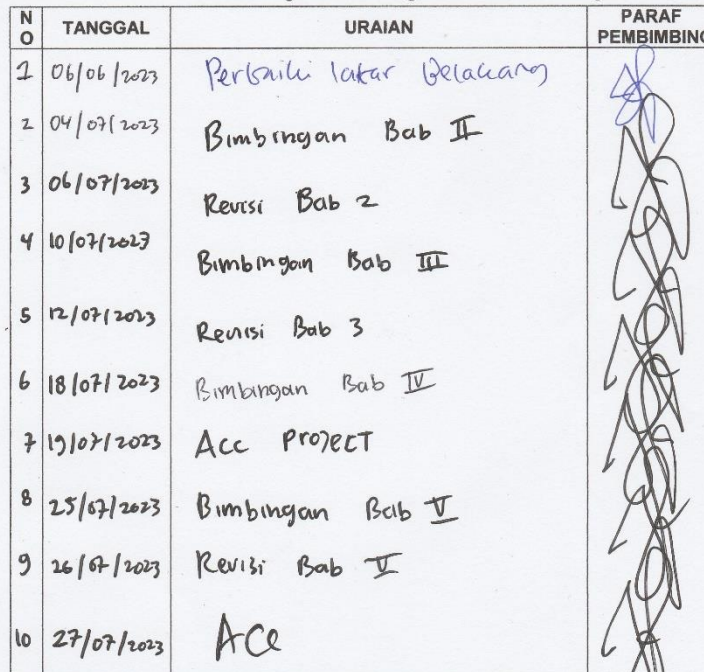 NO TANGGAL URAIAN PARAF PEMBIMBING
1 06/06/2023 Perbaiki latar Belakang
2 04/07/2023 Bimbingan Bab II
3 06/07/2023 Revisi Bab 2
4 10/07/2023 Bimbingan Bab III
5 12/07/2023 Revisi Bab 3
6 18/07/2023 Bimbingan Bab IV
7 19/07/2023 Acc Project
8 25/07/2023 Bimbingan Bab V
9 26/07/2023 Revisi Bab V
10 27/07/2023 Acc